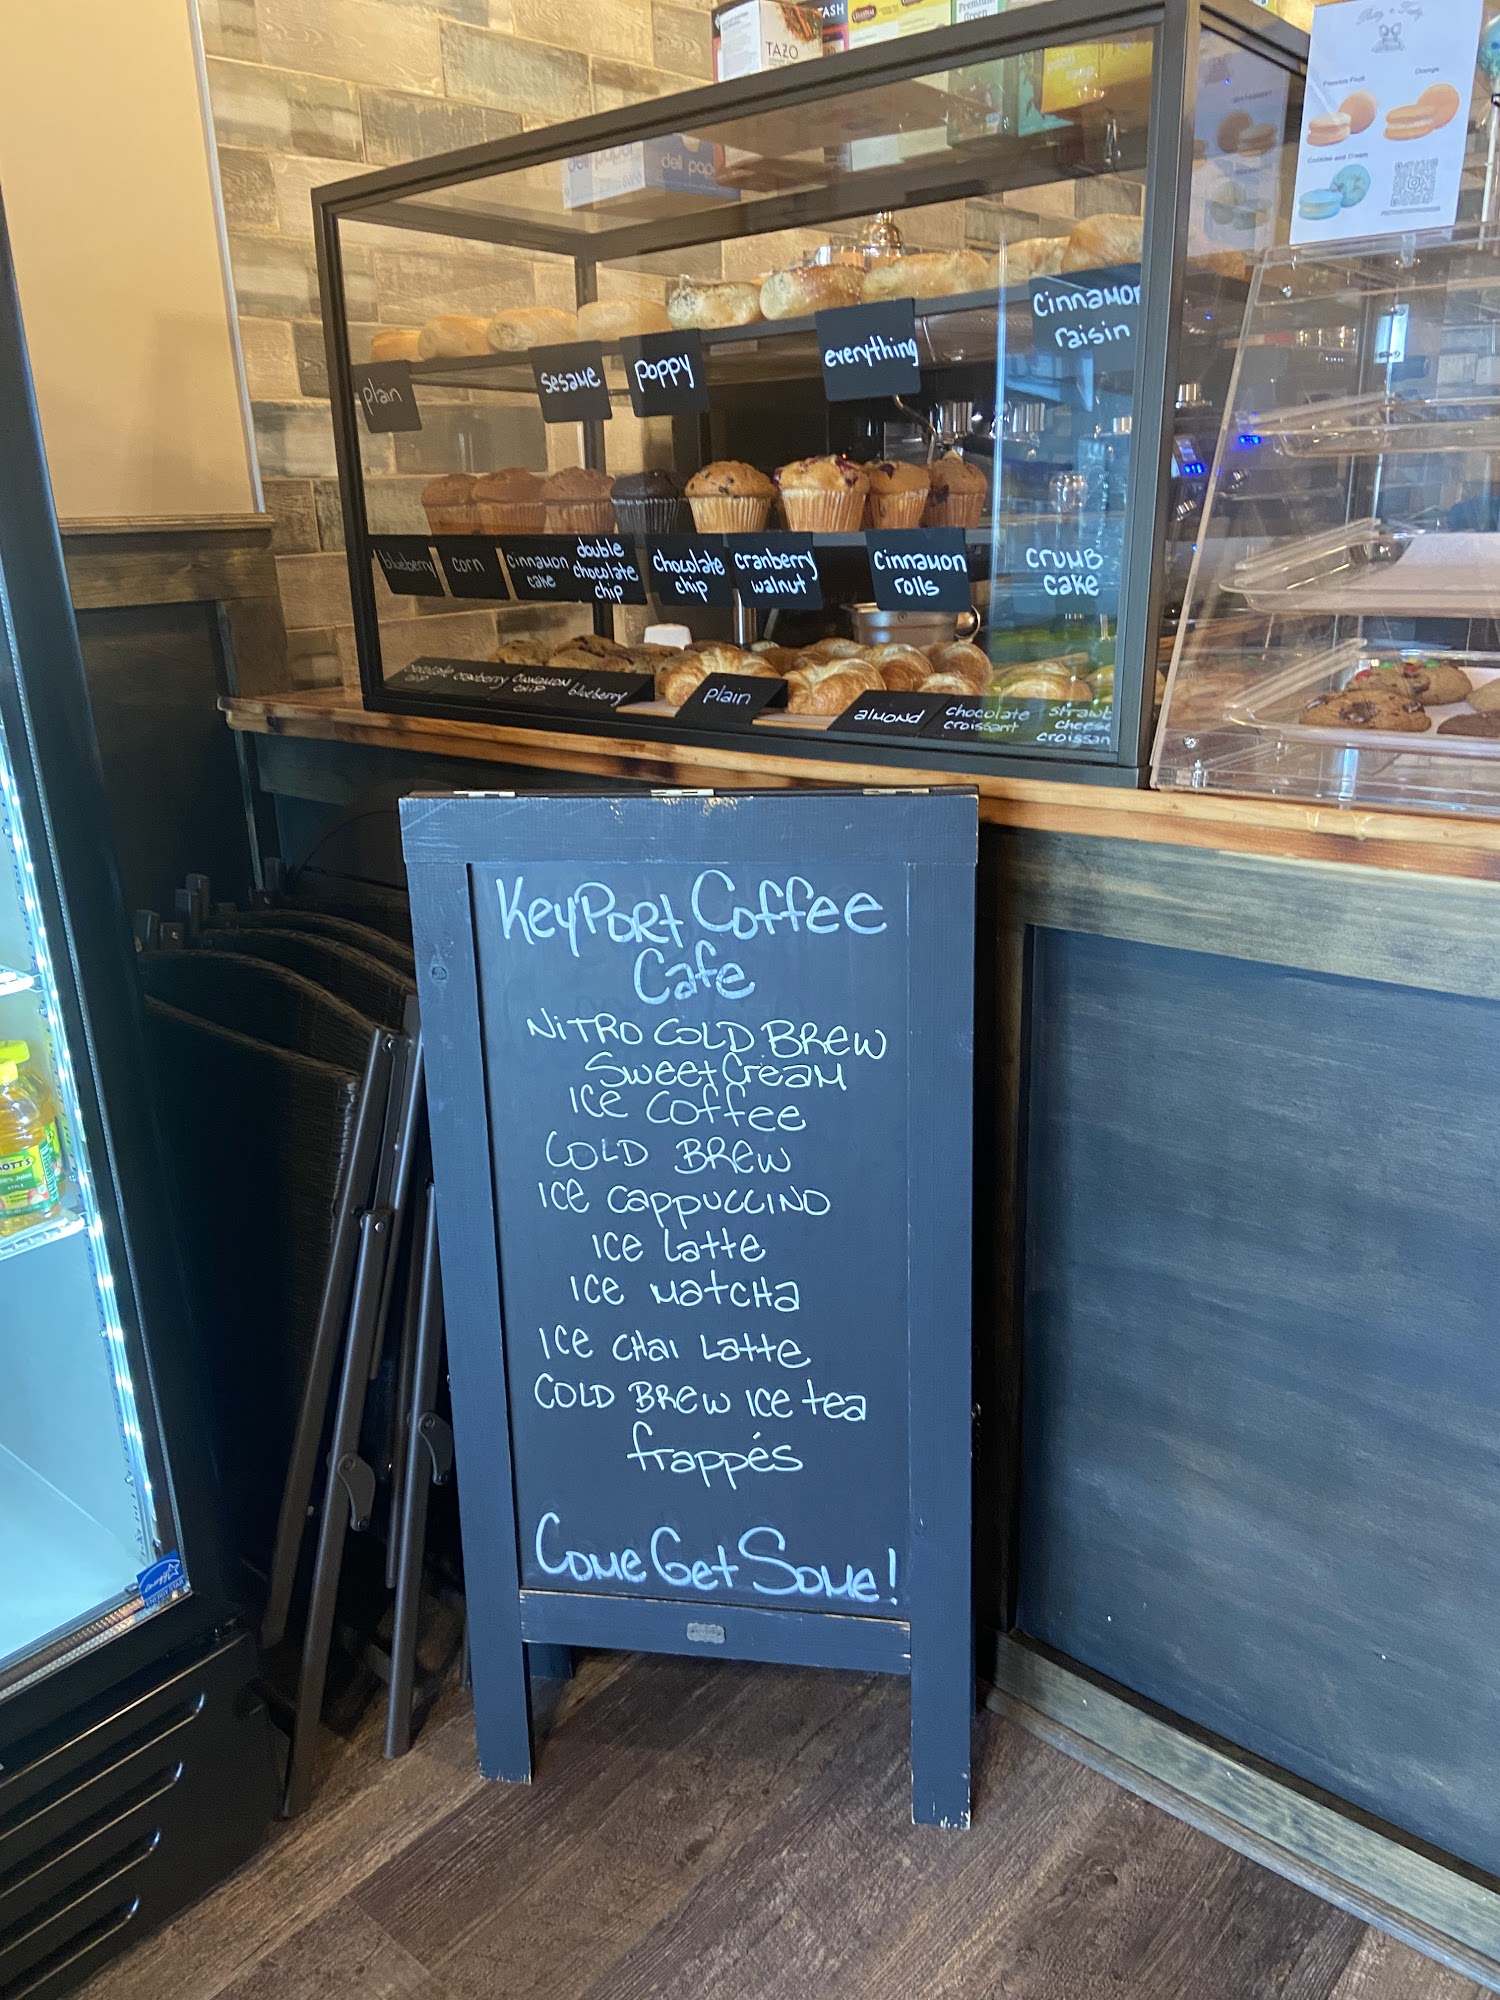 TAZO
deli paper
deli pap
Passion Fruit
Orange
Cookies and Cream
plain
sesame
poppy
everything
cinnamon
raisin
blueberry
corn
cinnamon
cake
double
chocolate
chip
chocolate
chip
cranberry
walnut
cinnamon
rolls
crumb
cake
chocolate
chip
cranberry
cinnamon
chip
blueberry
plain
almond
chocolate
croissant
straw
cheese
croissan
KeyPort Coffee
Cafe
NiTRO COLD BREW
Sweet Cream
ICe COffee
COLD BREW
ICe CappuccINO
ICe Latte
ICe MatcHa
ICe CHaI Latte
COLD BREW ICe tea
frappés
Come Get Some!
OTT'S